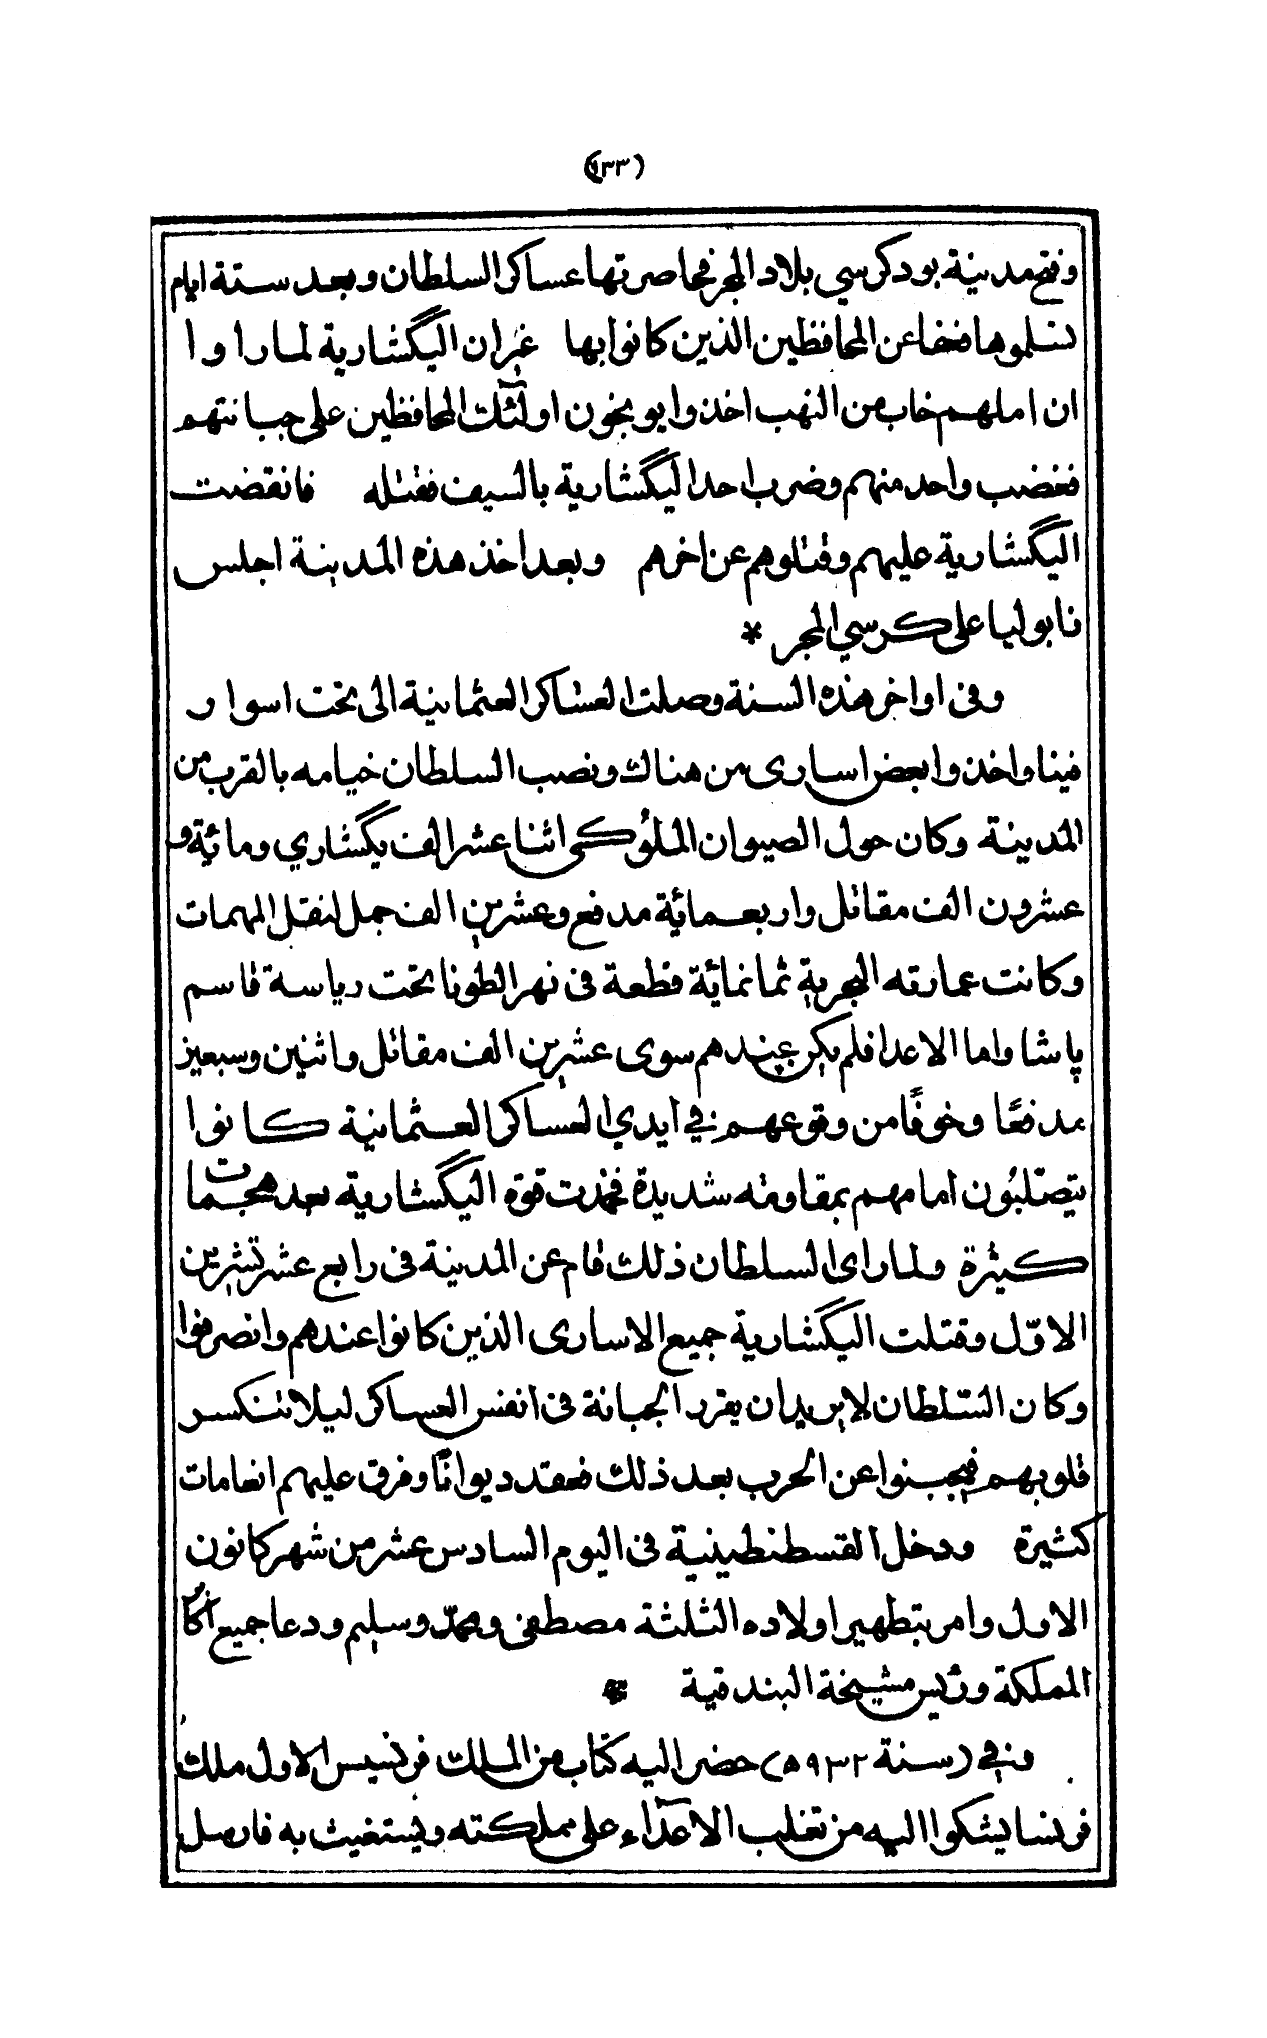 (١٣٣)
وفتح مدينة بود كرسي بلاد المجر فحاصرتها عساكر السلطان وبعد ستة ايام
تسلموها ضخفا عن المحافظين الذين كانوا بها غير ان اليكشارية لما راوا
ان املهم خاب من النهب اخذوا يوبخون اولئك المحافظين على جبانتهم
فغضب واحد منهم وضرب احد اليكشارية بالسيف فقتله فانقضت
اليكشارية عليهم وقتلوهم عن اخرهم وبعد اخذ هذه المدينة اجلس
نابوليا على كرسي المجر *
وفي اواخر هذه السنة وصلت العساكر العثمانية الى تحت اسوار
فينا واخذوا بعض اسارى من هناك ونصب السلطان خيامه بالقرب من
المدينة وكان حول الصيوان الملوكي اثنا عشر الف يكشاري ومائة و
عشرون الف مقاتل واربعمائة مدفع وعشرين الف جمل لنقل المهمات
وكانت عمارته البحرية ثمانمائة قطعة في نهر الطونا تحت رياسة قاسم
پاشا واما الاعدا فلم يكن عندهم سوى عشرين الف مقاتل واثنين وسبعين
مدفعًا وخوفًا من وقوعهم في ايدي العساكر العثمانية كانوا
يتصلبون امامهم بمقاومة شديدة فخمدت قوة اليكشارية بعد هجمات
كثيرة ولما راى السلطان ذلك قام عن المدينة في رابع عشر تشرين
الاوّل وقتلت اليكشارية جميع الاسارى الذين كانوا عندهم وانصرفوا
وكان السلطان لا يريد ان يقرر الجبانة في انفس العساكر ليلا تنكسر
قلوبهم فيجبنوا عن الحرب بعد ذلك فعقد ديوانًا وفرق عليهم انعامات
كثيرة ودخل القسطنطينية في اليوم السادس عشر من شهر كانون
الاول وامر بتطهير اولاده الثلثة مصطفى ومحمّد وسليم ودعا جميع اكابر
المملكة ورئيس مشيخة البندقية *
وفي (سنة ٩٣٢ ه) حضر اليه كتاب من الملك فرنسيس الاول ملك
فرنسا يشكو اليه من تغلب الاعدآء على مملكته ويستغيث به فارسل